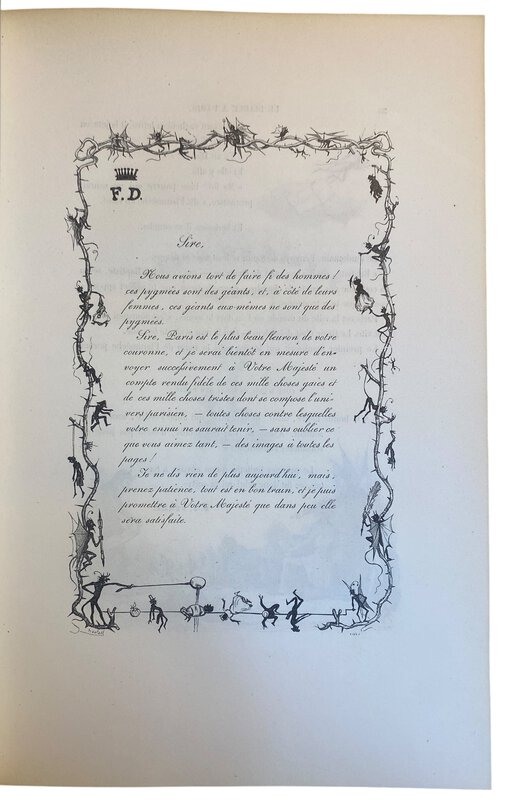 F.D.
Sire,
Nous avions tort de faire fi des hommes !
ces pygmées sont des géants, et, à côté de leurs
femmes, ces géants eux-mêmes ne sont que des
pygmées.
Sire, Paris est le plus beau fleuron de votre
couronne, et je serai bientôt en mesure d'en-
voyer successivement à Votre Majesté un
compte rendu fidèle de ces mille choses gaies et
de ces mille choses tristes dont se compose l'uni-
vers parisien, — toutes choses contre lesquelles
votre ennui ne saurait tenir, — sans oublier ce
que vous aimez tant, — des images à toutes les
pages !
Je ne dis rien de plus aujourd'hui, mais,
prenez patience, tout est en bon train, et je puis
promettre à Votre Majesté que dans peu elle
sera satisfaite.